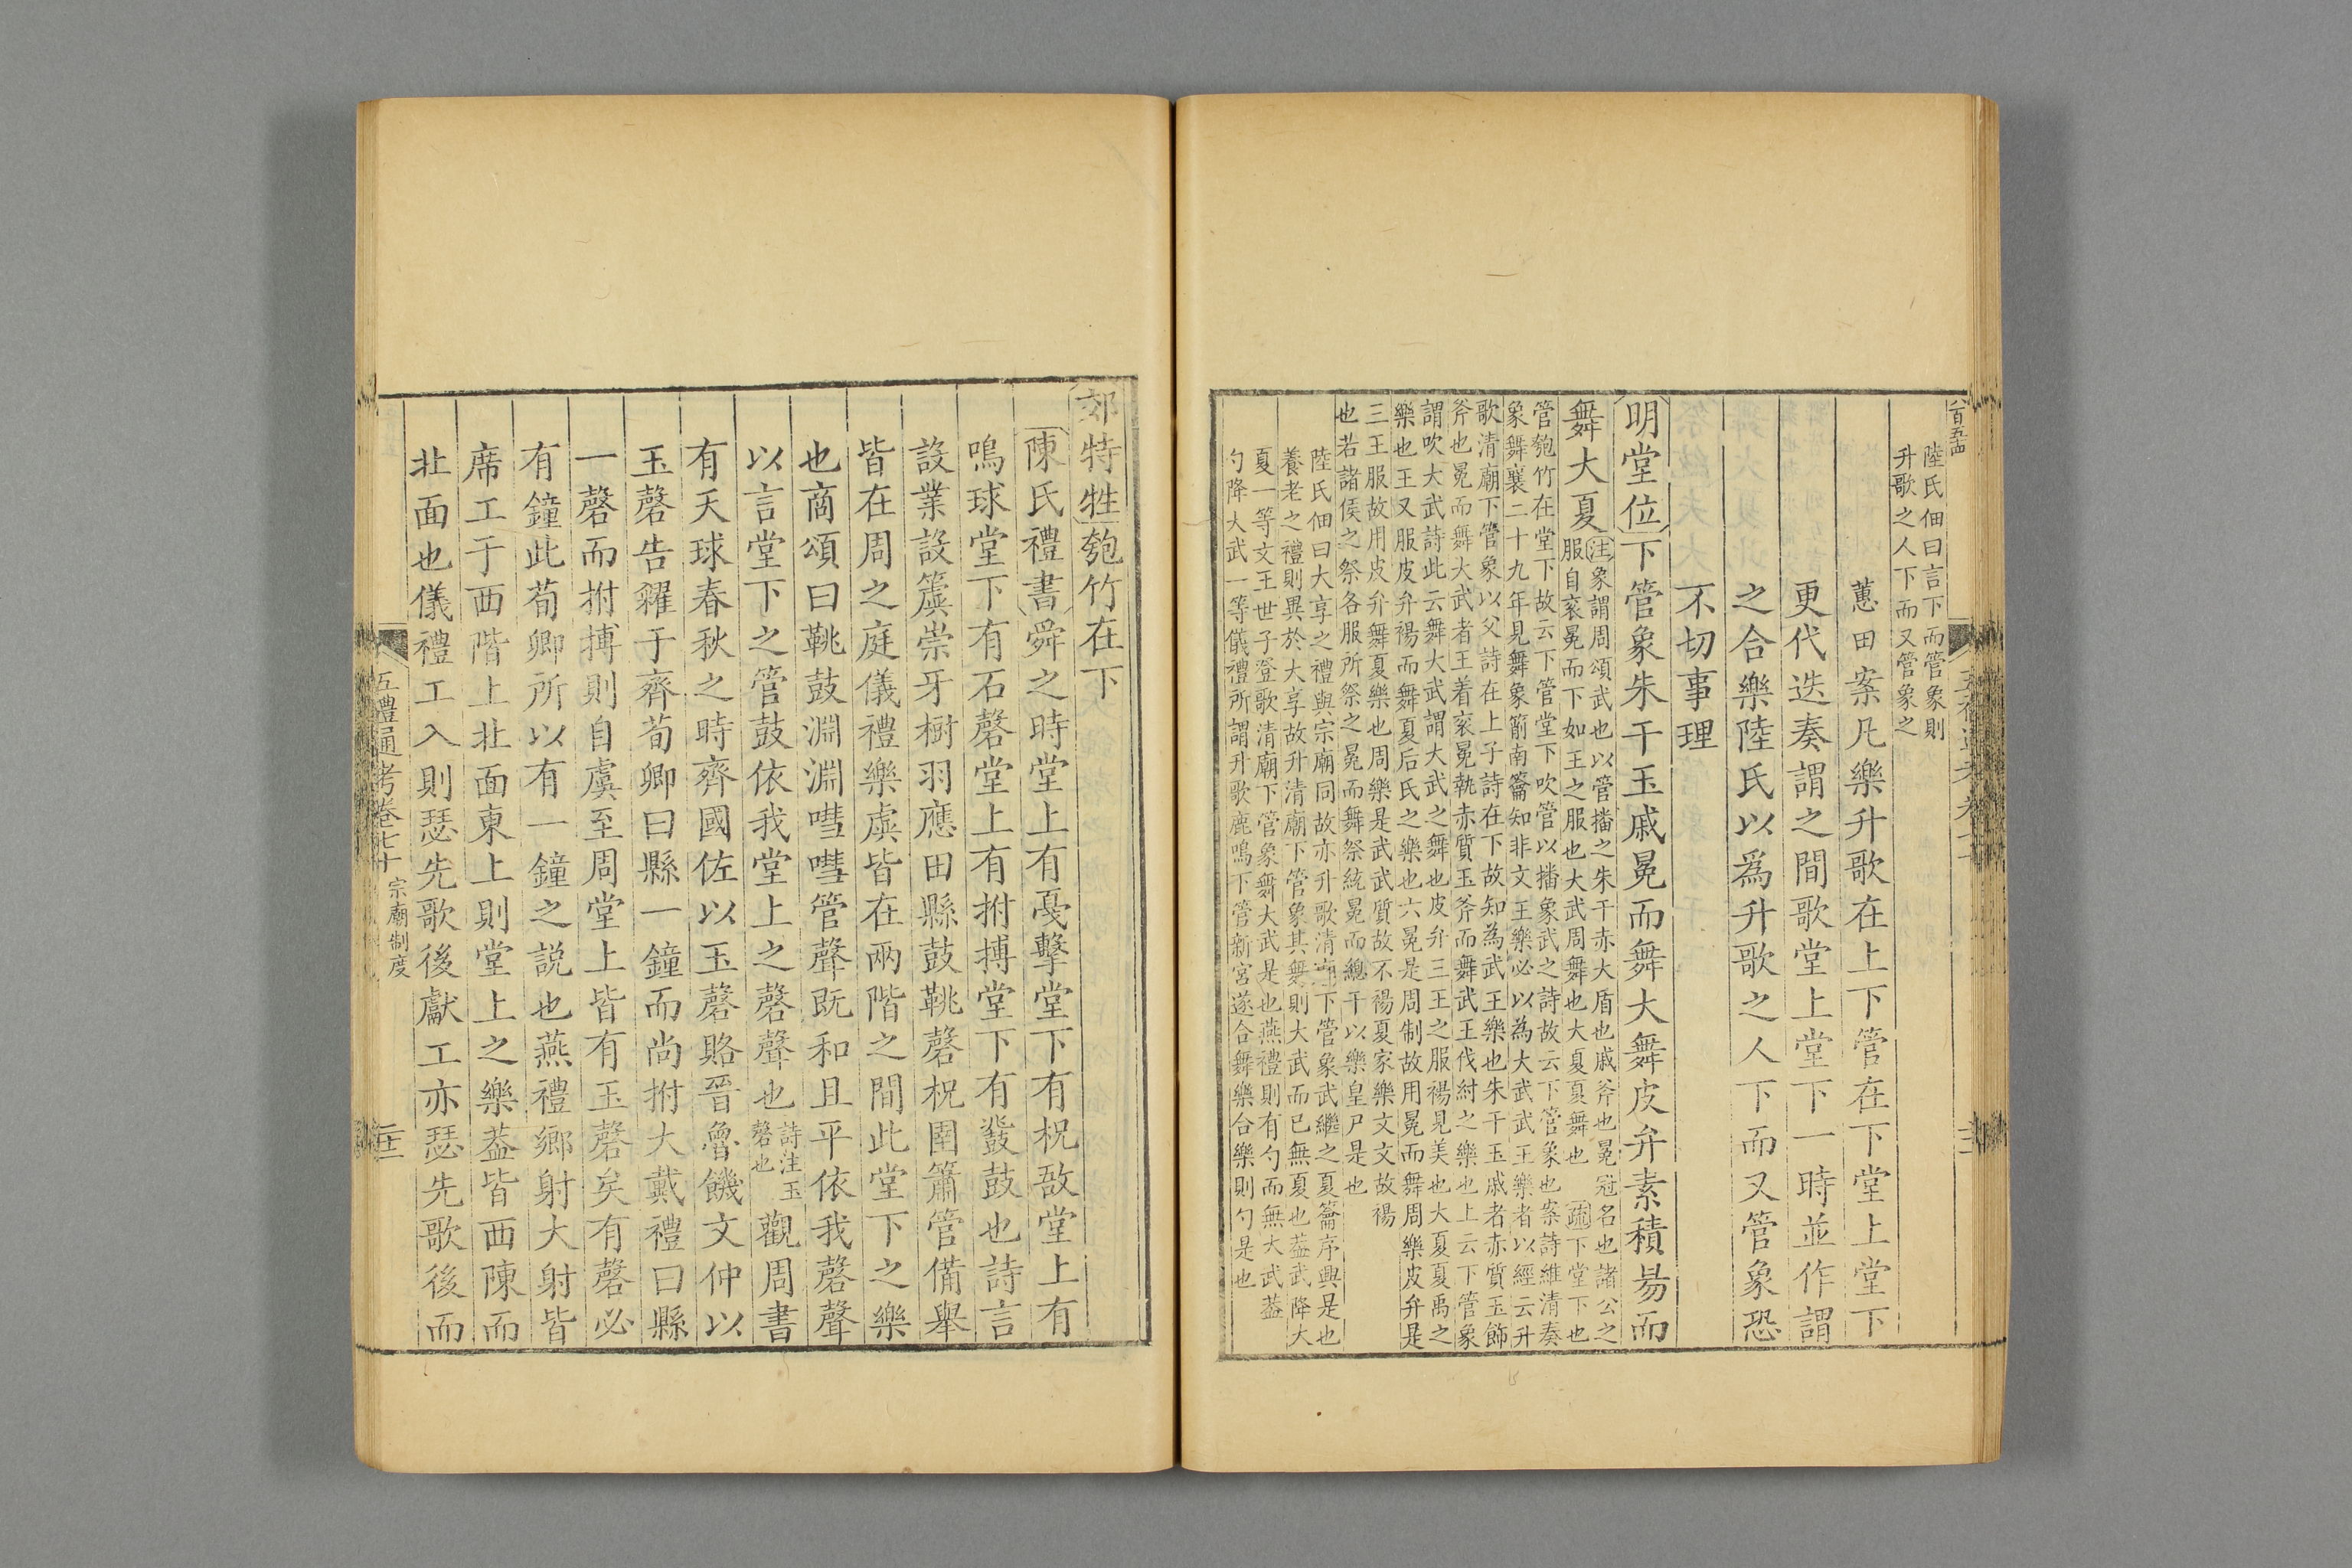 八百五十四
陸氏佃曰言下而管象則
升歌之人下而又管象之
蕙田案凡樂升歌在上下管在下堂上堂下
更代迭奏謂之間歌堂上堂下一時並作謂
之合樂陸氏以爲升歌之人下而又管象恐
不切事理
明堂位下管象朱干玉戚冕而舞大舞皮弁素積裼而
舞大夏
注象謂周頌武也以管播之朱干赤大盾也戚斧也冕冠名也諸公之
服自衮冕而下如王之服也大武周舞也大夏夏舞也 疏下堂下也
管匏竹在堂下故云下管堂下吹管以播象武之詩故云下管象也案詩維清奏
象舞襄二十九年見舞象箾南籥知非文王樂必以為大武武王樂者以經云升
歌清廟下管象以父詩在上子詩在下故知為武王樂也朱干玉戚者赤質玉飾
斧也冕而舞大武者王着衮冕執赤質玉斧而舞武王伐紂之樂也上云下管象
謂吹大武詩此云舞大武謂大武之舞也皮弁三王之服裼見美也大夏夏禹之
樂也王又服皮弁裼而舞夏后氏之樂也六冕是周制故用冕而舞周樂皮弁是
三王服故用皮弁舞夏樂也周樂是武武質故不裼夏家樂文文故裼
也若諸侯之祭各服所祭之冕而舞祭統冕而總干以樂皇尸是也
陸氏佃曰大享之禮與宗廟同故亦升歌清廟下管象武繼之夏籥序興是也
養老之禮則異於大享故升清廟下管象其舞則大武而已無夏也葢武降大
夏一等文王世子登歌清廟下管象舞大武是也燕禮則有勺而無大武葢
勺降大武一等儀禮所謂升歌鹿鳴下管新宮遂合舞樂合樂則勺是也
郊特牲匏竹在下
陳氏禮書舜之時堂上有戞擊堂下有柷敔堂上有
鳴球堂下有石磬堂上有拊搏堂下有鼗鼓也詩言
設業設簴崇牙樹羽應田縣鼓鞉磬柷圉簫管備舉
皆在周之庭儀禮樂虡皆在兩階之間此堂下之樂
也商頌曰鞉鼓淵淵嘒嘒管聲既和且平依我磬聲
以言堂下之管鼓依我堂上之磬聲也詩注玉磬也觀周書
有天球春秋之時齊國佐以玉磬賂晉魯饑文仲以
玉磬告糴于齊荀卿曰縣一鐘而尚拊大戴禮曰縣
一磬而拊搏則自虞至周堂上皆有玉磬矣有磬必
有鐘此荀卿所以有一鐘之説也燕禮鄉射大射皆
席工于西階上北面東上則堂上之樂葢皆西陳而
北面也儀禮工入則瑟先歌後獻工亦瑟先歌後而
五禮通考卷七十 宗廟制度